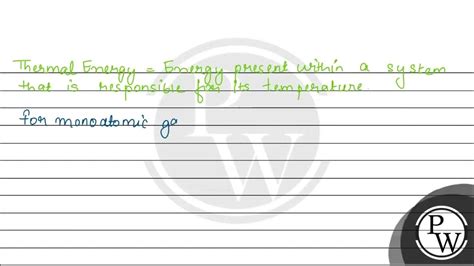 Thermal Energy = Energy present within a system
that is responsible for its temperature.
for monoatomic ga
P
W
P
W